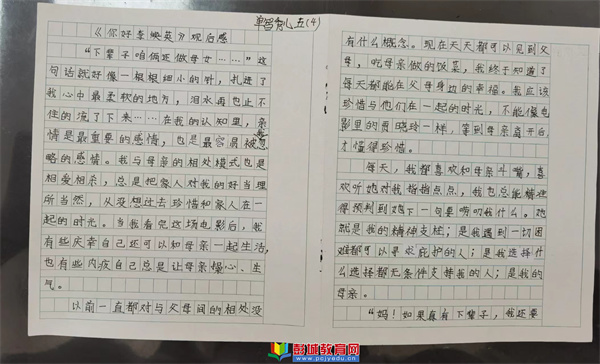 五(4)
《你好李焕英》观后感
“下辈子咱俩还做母女……”这
句话就好像一根根细小的针，扎进了
我心中最柔软的地方，泪水再也止不
住的流了下来……在我的认知里，亲
情是最重要的感情，也是最容易被我忽
略的感情。我与母亲的相处模式也是
相爱相杀，总是把家人对我的好当理
所当然，从没想过去珍惜和家人在一
起的时光。当我看完这场电影后，我
有些庆幸自己还可以和母亲一起生活，
也有些内疚自己总是让母亲操心、生
气。
以前一直都对与父母间的相处没
有什么概念。现在天天都可以见到父
母，吃母亲做的饭菜，我终于知道了
每天都能在父母身边的幸福。我应该
珍惜与他们在一起的时光，不能像电
影里的贾晓玲一样，等到母亲离开后，
才懂得珍惜。
每天，我都喜欢和母亲斗嘴，喜
欢听她对我指指点点，我也总能精准
得预判到她下一句要唠叨我什么。她
就是我的精神支柱；是我遇到一切困
难都可以寻求庇护的人；是我选择什
么选择都无条件支持我的人；是我的
母亲。
“妈！如果真有下辈子，我还要
彭城教育网
www.pcjyedu.cn